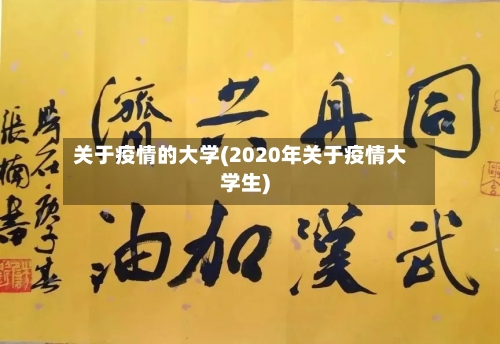 同舟共濟
武漢加油
时在庚子春
张楠书
关于疫情的大学(2020年关于疫情大
学生)